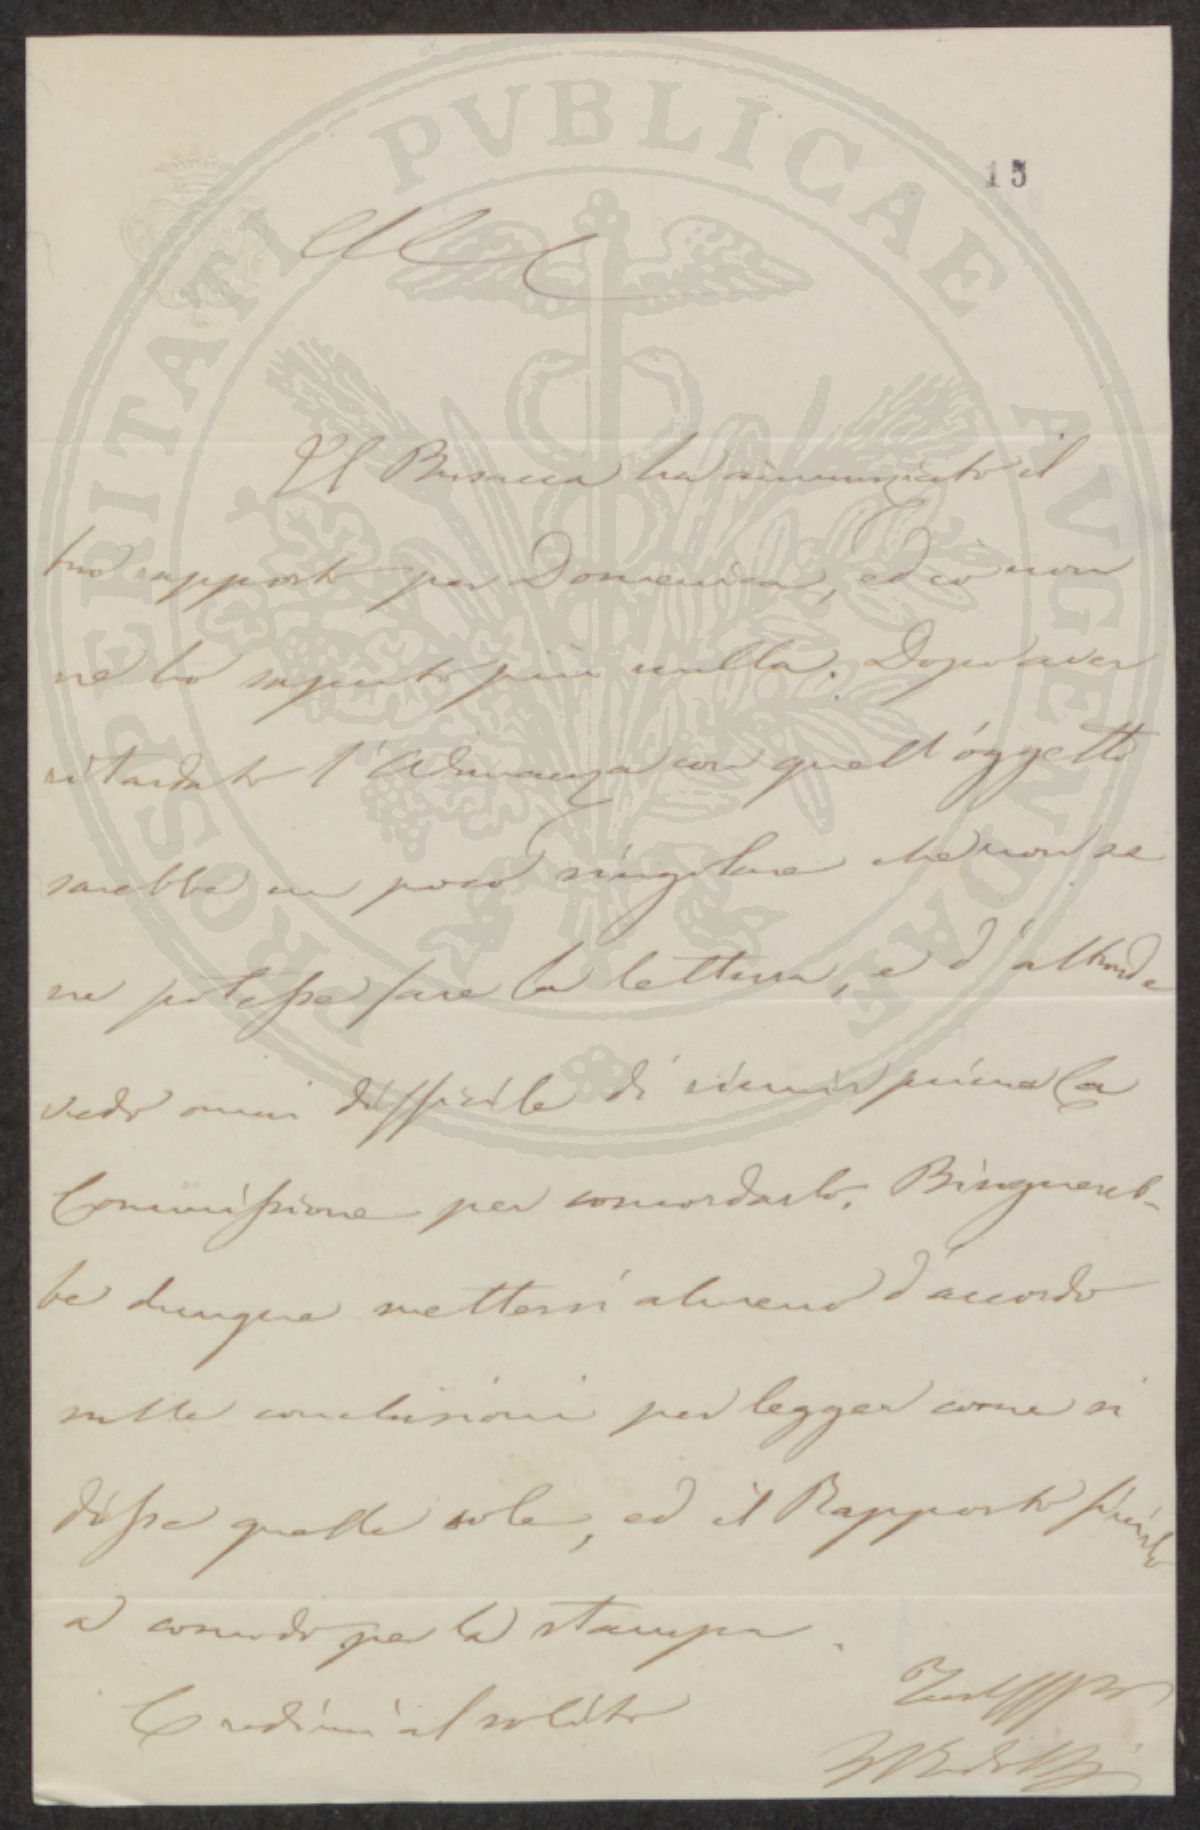 PROSPERITATI PUBLICAE AVGENDAE
15
Il Busacca ha annunziato il
tuo rapporto per Domenica, ed io non
ne ho saputo più nulla. Dopo aver
ritardato l'Adunanza con quell'oggetto
sarebbe un poco singolare che non se
ne potesse fare la lettura, e d'altronde
vedo omai difficile di riunir prima la
Commissione per concordarlo. Bisognereb-
be dunque mettersi almeno d'accordo
sulle conclusioni per legger come si
disse quelle sole, ed il Rapporto finirlo
a comodo per la stampa.
Credimi al solito